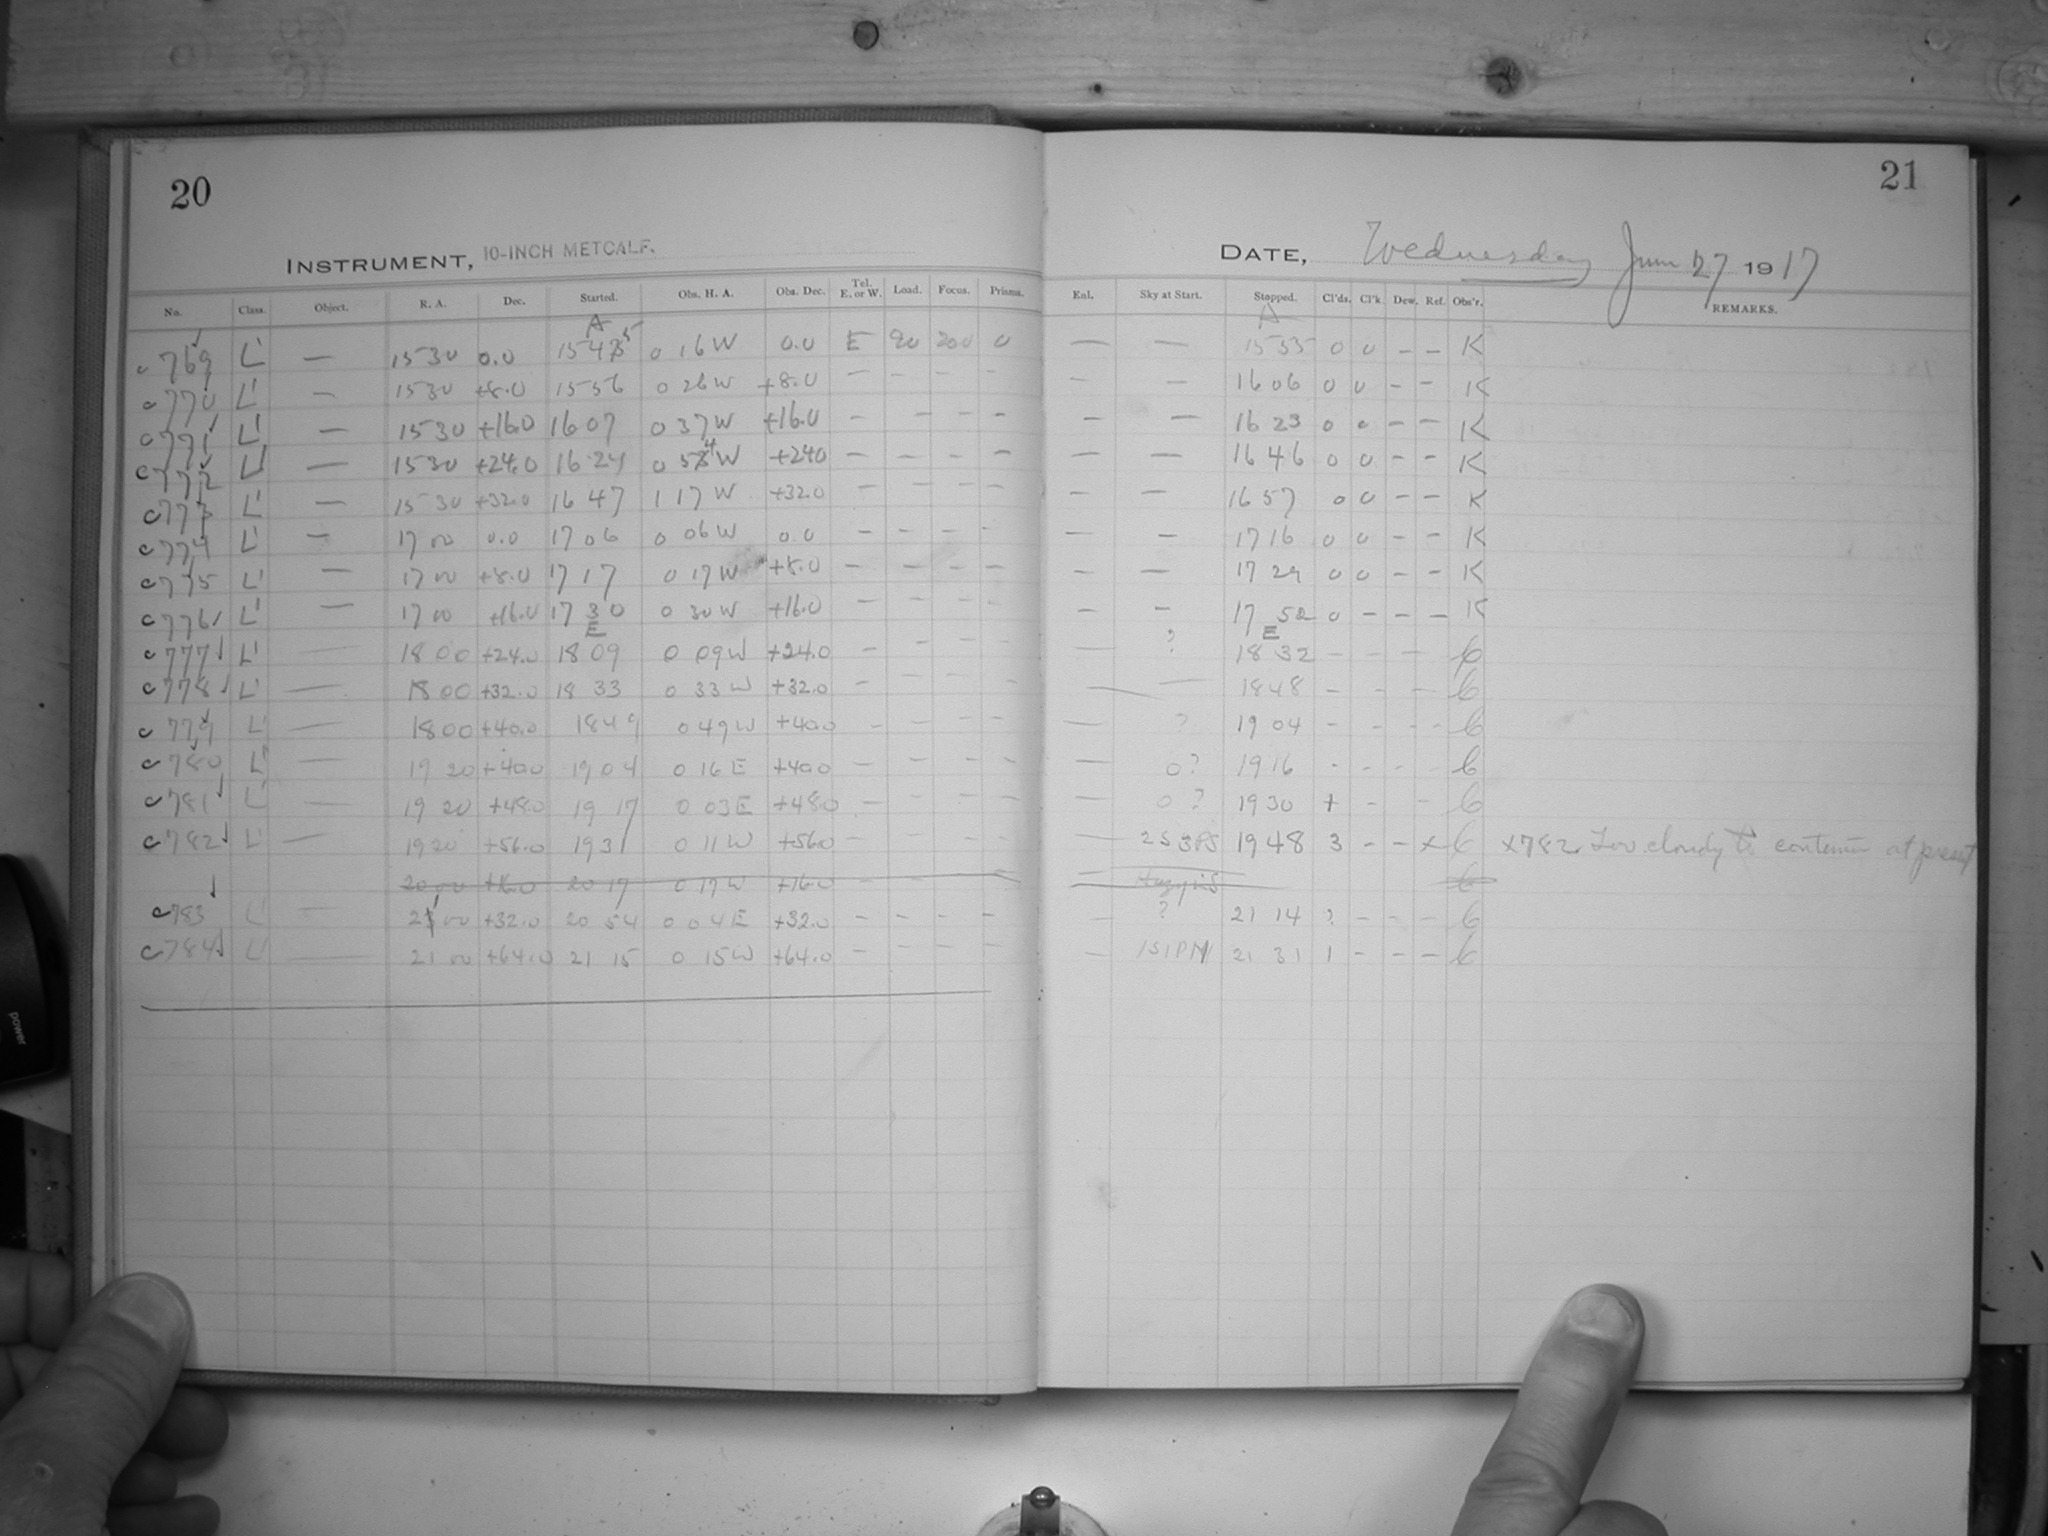 20
21
INSTRUMENT, 10-INCH METCALF.
DATE, Wednesday June 27 1917
No. Class. Object. R. A. Dec. Started. Obs. H. A. Obs. Dec. Tel. E. or W. Load. Focus. Prisms. Enl. Sky at Start. Stopped. Cl'ds. Cl'k. Dew. Ref. Obs'r. REMARKS.
A A
c769 L' — 15 30 0.0 15 45 0 16 W 0.0 E 90 200 0 — — 15 55 0 0 – – K
c770 L' — 15 30 +8.0 15 56 0 26 W +8.0 – – – – – — 16 06 0 0 – – K
c771 L' — 15 30 +16.0 16 07 0 37 W +16.0 – – – – – — 16 23 0 0 – – K
c772 L' — 15 30 +24.0 16 24 0 54 W +24.0 – – – – — — 16 46 0 0 – – K
c773 L' — 15 30 +32.0 16 47 1 17 W +32.0 – – – – – — 16 57 0 0 – – K
c774 L' — 17 00 0.0 17 06 0 06 W 0.0 – – – – — — 17 16 0 0 – – K
c775 L' — 17 00 +8.0 17 17 0 17 W +8.0 – – – – — — 17 29 0 0 – – K
c776 L' — 17 00 +16.0 17 30 0 30 W +16.0 – – – – — — 17 52 0 – – – K
E E
c777 L' — 18 00 +24.0 18 09 0 09 W +24.0 – – – – — ? 18 32 – – – 6
c778 L' — 18 00 +32.0 18 33 0 33 W +32.0 – – – – — — 18 48 – – – – 6
c779 L' — 18 00 +40.0 18 49 0 49 W +40.0 – – – – — ? 19 04 – – – – 6
c780 L' — 19 20 +40.0 19 04 0 16 E +40.0 – – – – — 0? 19 16 – – – – 6
c781 L' — 19 20 +48.0 19 17 0 03 E +48.0 – – – – — 0? 19 30 + – – 6
c782 L' — 19 20 +56.0 19 31 0 11 W +56.0 – – – – — 2S3PS 19 48 3 – – x 6 x782. Too cloudy to continue at present
20 00 +16.0 20 17 0 17 W +16.0 6
c783 L' — 21 00 +32.0 20 54 0 04 E +32.0 – – – – — ? 21 14 ? – – – 6
c784 L' — 21 00 +64.0 21 15 0 15 W +64.0 – – – – — 1S1PM 21 31 1 – – – 6
power